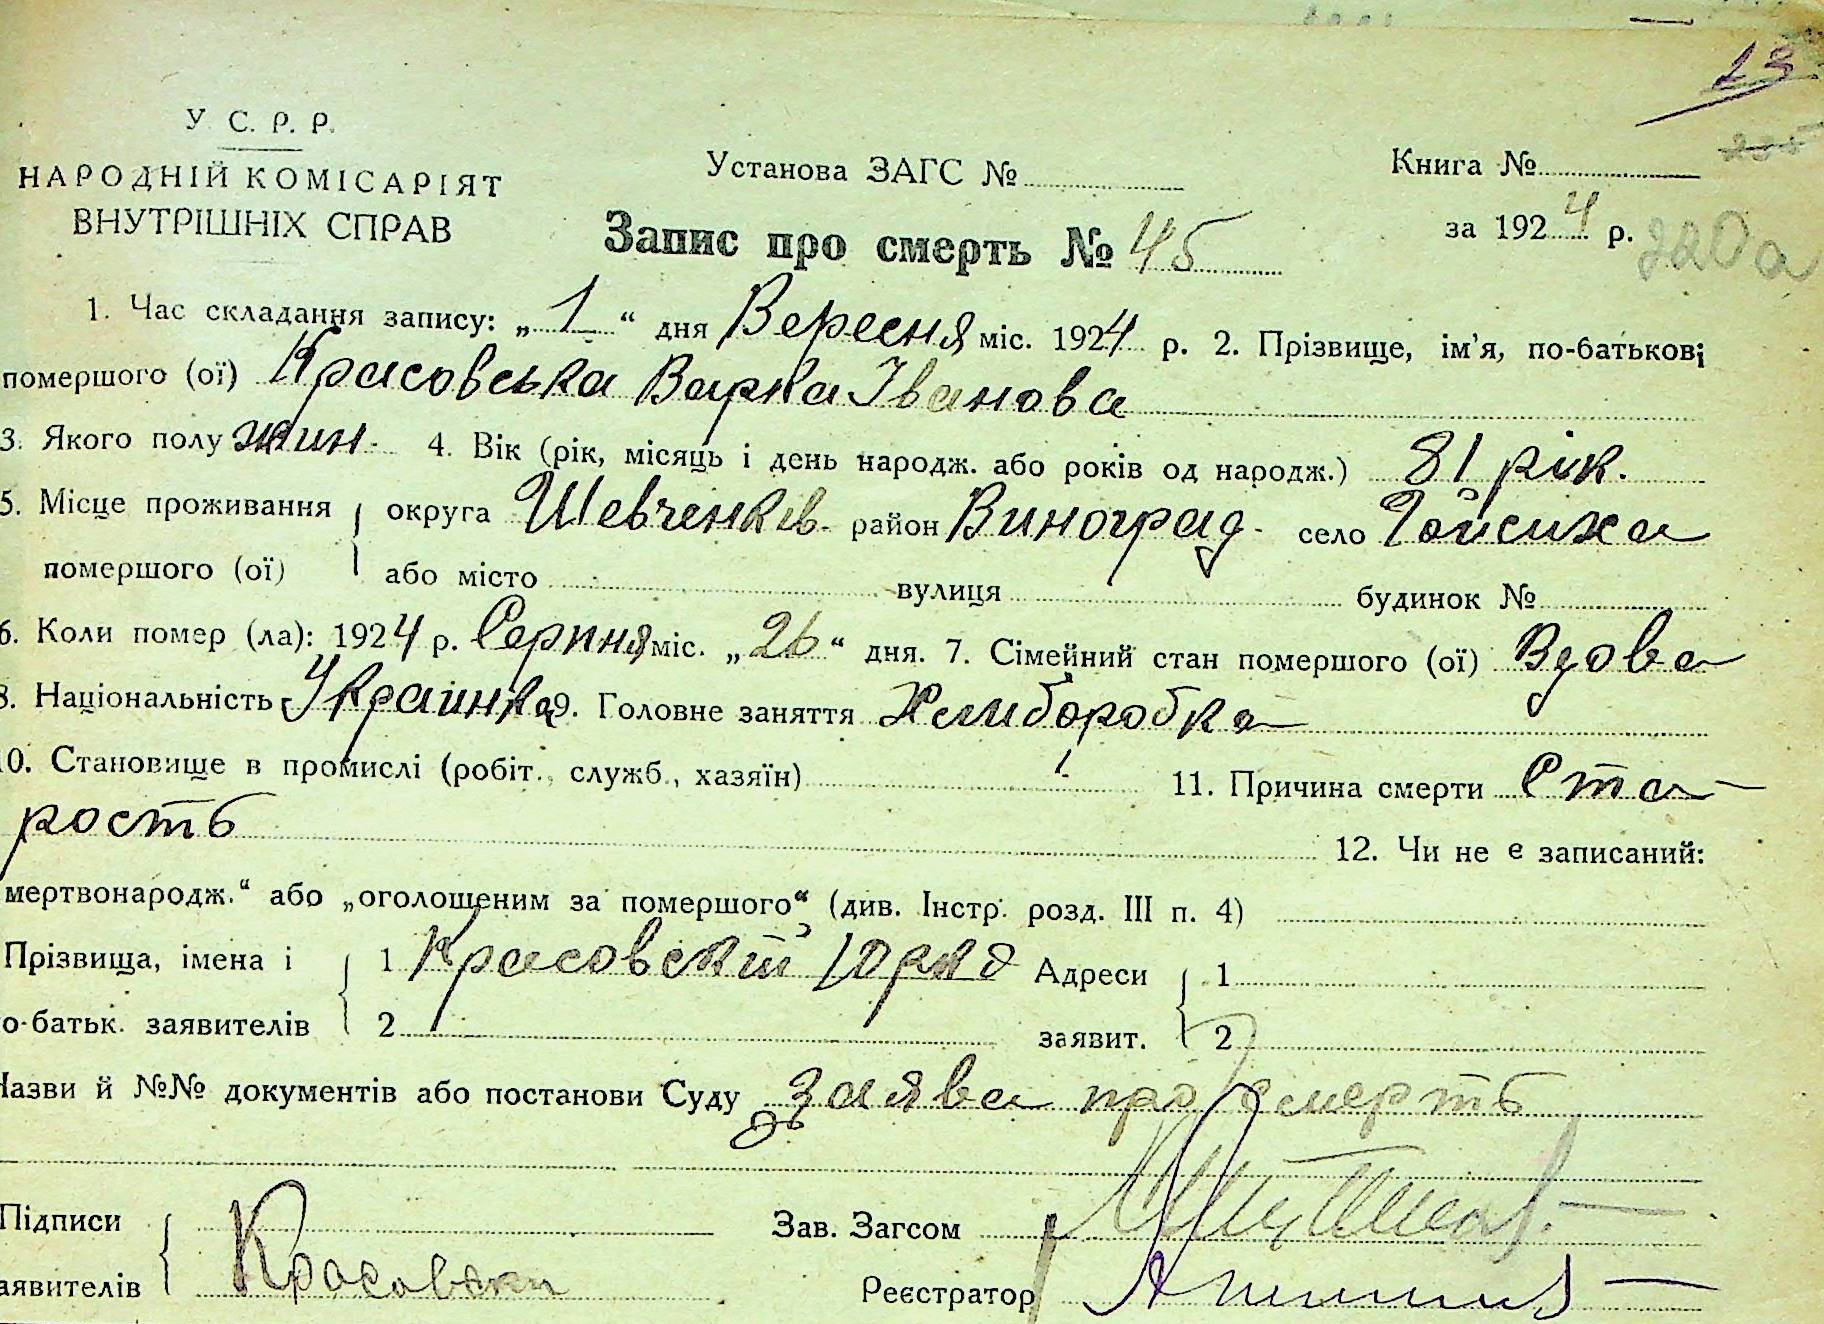 23
У. С. Р. Р.
НАРОДНІЙ КОМІСАРІЯТ
ВНУТРІШНІХ СПРАВ
Установа ЗАГС №
Книга №
Запис про смерть № 45
за 1924 р.
220а
1. Час складання запису: „1“ дня Вересня міс. 1924 р. 2. Прізвище, ім'я, по-батькові
помершого (ої) Красовська Варка Іванова
3. Якого полу жин. 4. Вік (рік, місяць і день народж. або років од народж.) 81 рік.
5. Місце проживання округа Шевченків. район Виноград. село Гойсиха
помершого (ої) або місто вулиця будинок №
6. Коли помер (ла): 1924 р. Серпня міс. „26“ дня. 7. Сімейний стан помершого (ої) Вдова
8. Національність Украинка 9. Головне заняття Хлиборобка
10. Становище в промислі (робіт., служб., хазяїн) 11. Причина смерти Ста-
рость
12. Чи не є записаний:
мертвонародж.“ або „оголошеним за помершого“ (див. Інстр. розд. III п. 4)
Прізвища, імена і 1 Красовский Юрко Адреси 1
о-батьк. заявителів 2 заявит. 2
Назви й №№ документів або постанови Суду заява про смерть
Підписи Зав. Загсом
аявителів Красовски Реєстратор